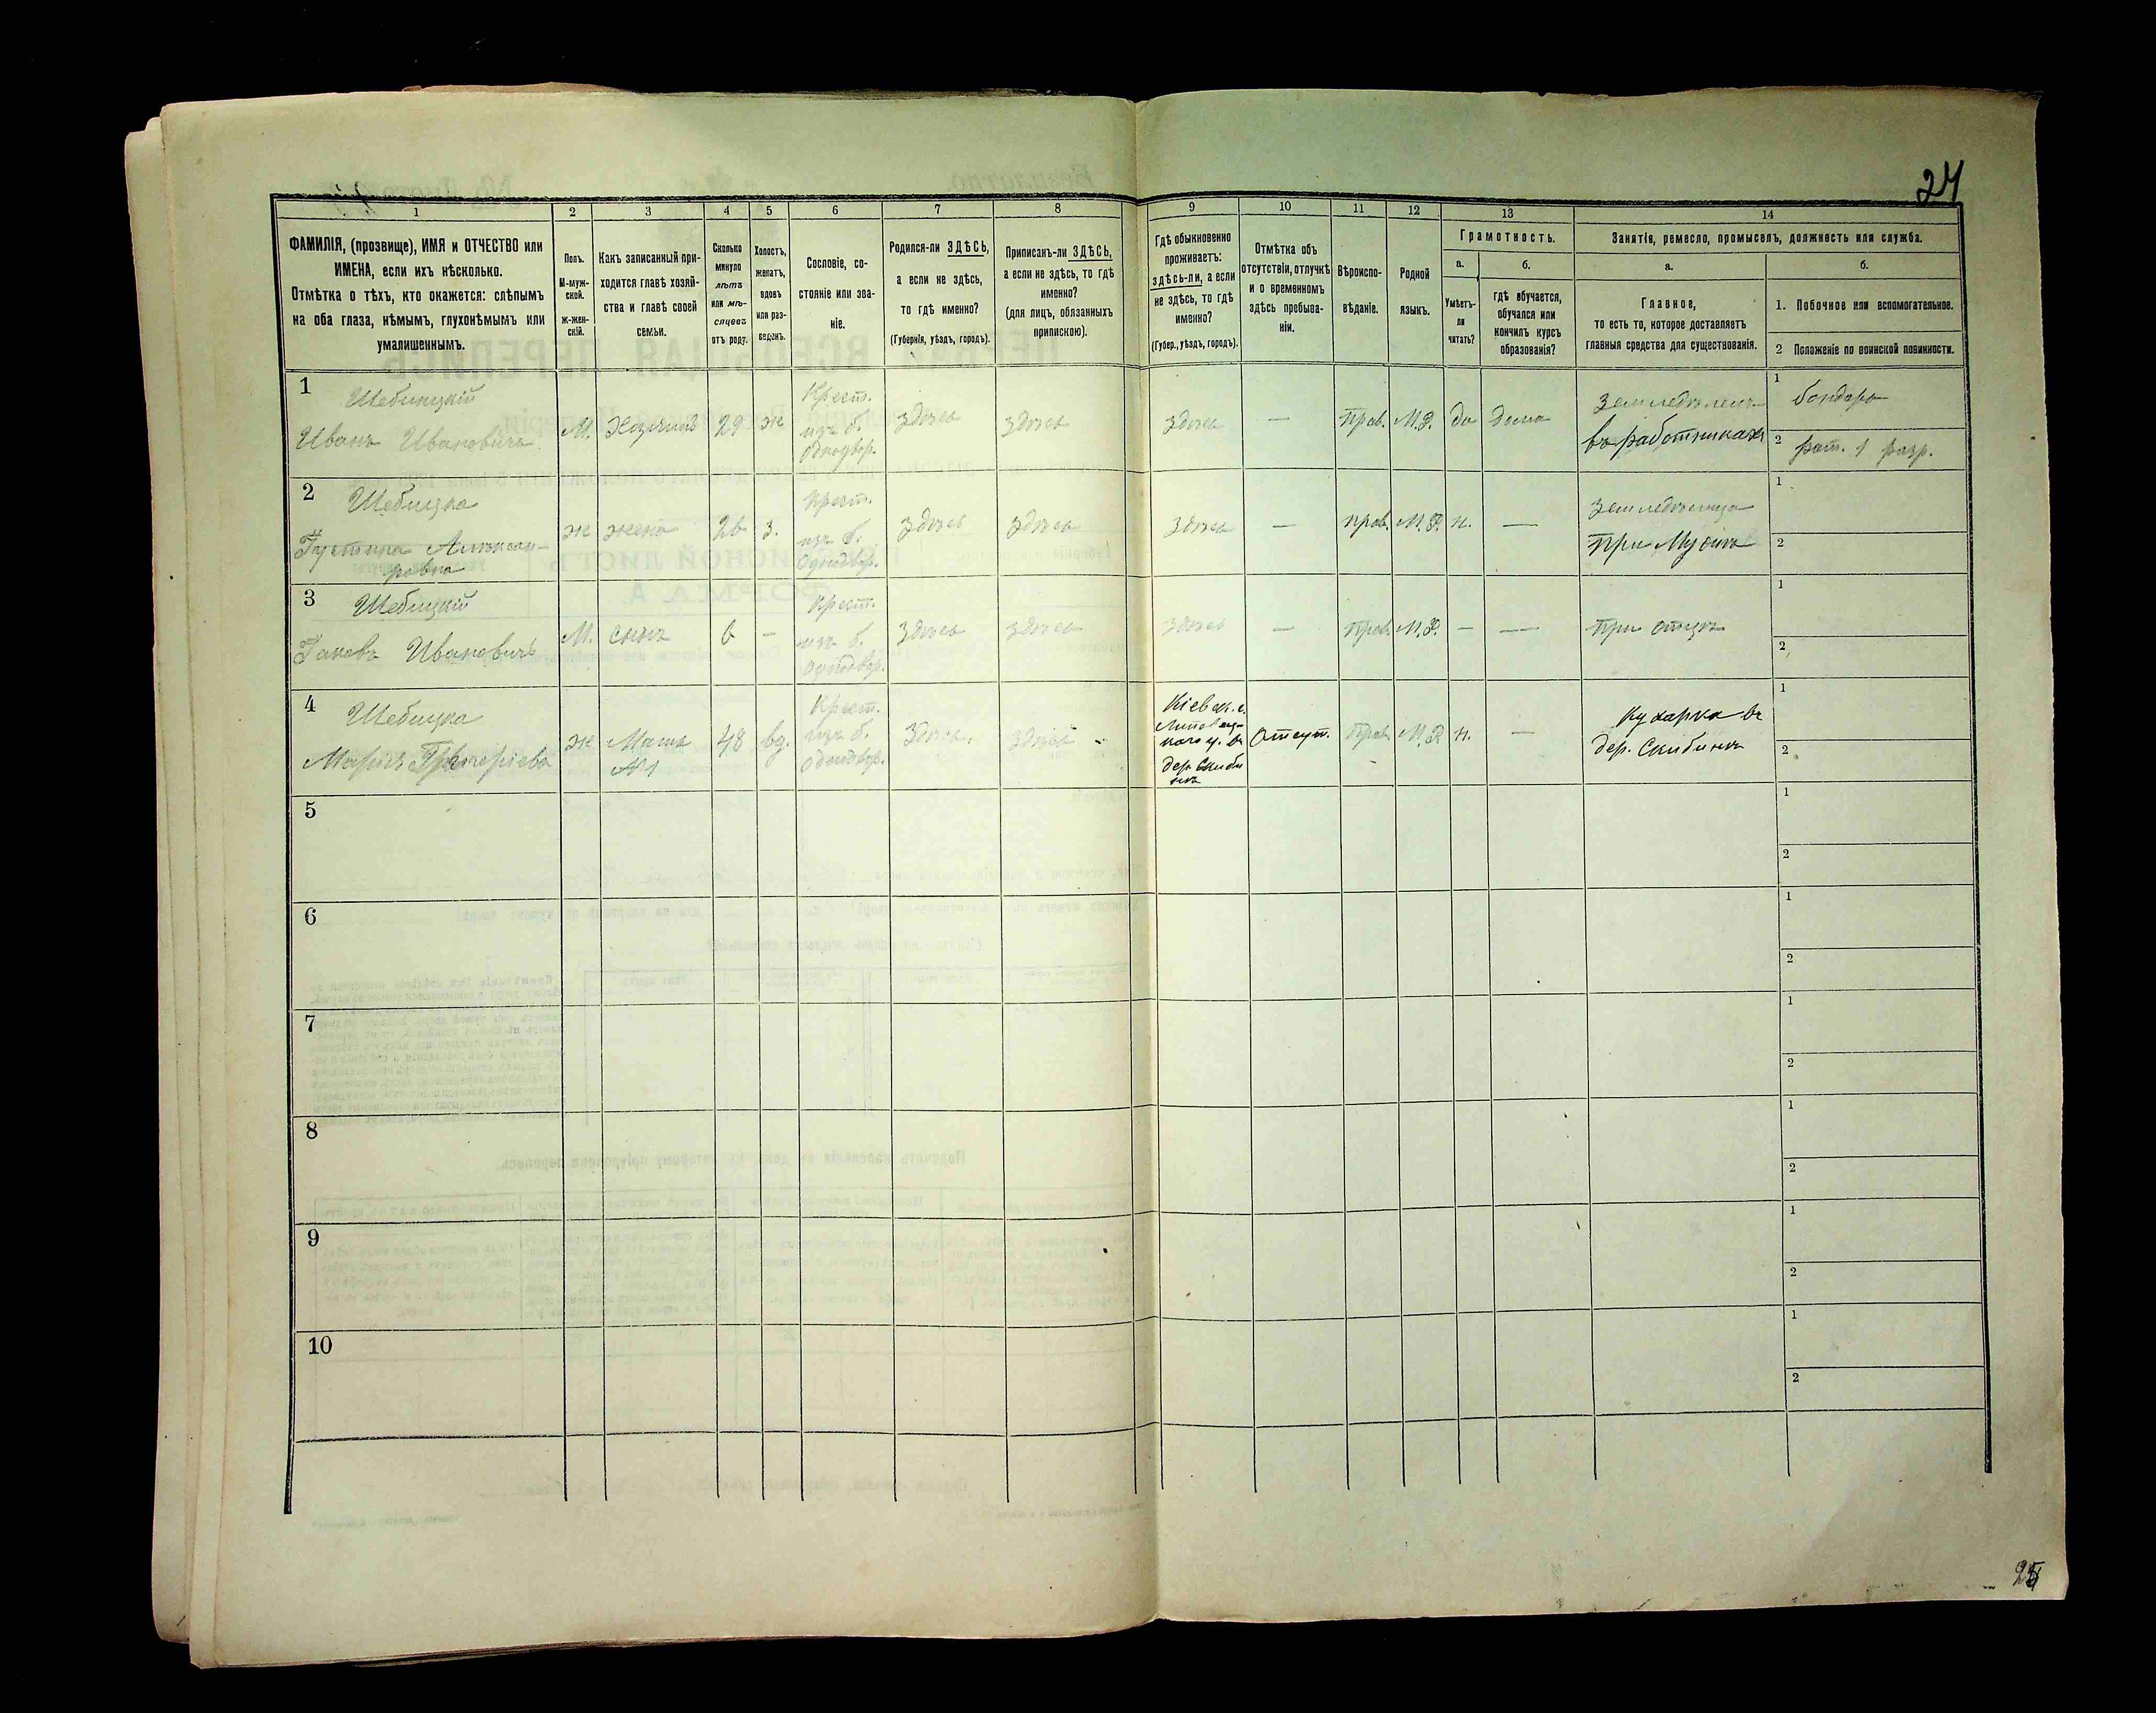 24
1 2 3 4 5 6 7 8 9 10 11 12 13 14
ФАМИЛІЯ, (прозвище), ИМЯ и ОТЧЕСТВО или
ИМЕНА, если ихъ нѣсколько.
Отмѣтка о тѣхъ, кто окажется: слѣпымъ
на оба глаза, нѣмымъ, глухонѣмымъ или
умалишеннымъ.
Полъ.
М-муж-
ской.
ж-жен-
скій.
Какъ записанный при-
ходится главѣ хозяй-
ства и главѣ своей
семьи.
Сколько
минуло
лѣтъ
или мѣ-
сяцевъ
отъ роду.
Холостъ,
женатъ,
вдовъ
или раз-
веденъ.
Сословіе, со-
стояніе или зва-
ніе.
Родился-ли ЗДѢСЬ,
а если не здѣсь,
то гдѣ именно?
(Губернія, уѣздъ, городъ).
Приписанъ-ли ЗДѢСЬ,
а если не здѣсь, то гдѣ
именно?
(для лицъ, обязанныхъ
припискою).
Гдѣ обыкновенно
проживаетъ:
здѣсь-ли, а если
не здѣсь, то гдѣ
именно?
(Губер., уѣздъ, городъ).
Отмѣтка объ
отсутствіи, отлучкѣ
и о временномъ
здѣсь пребыва-
ніи.
Вѣроиспо-
вѣданіе.
Родной
языкъ.
Грамотность.
а.
Умѣетъ-
ли
читать?
б.
гдѣ обучается,
обучался или
кончилъ курсъ
образованія?
Занятія, ремесло, промыселъ, должность или служба.
а.
Главное,
то есть то, которое доставляетъ
главныя средства для существованія.
б.
1. Побочное или вспомогательное.
2 Положеніе по воинской повинности.
1
Шебицкій
Иванъ Ивановичъ
М.
Хозяинъ
29
ж
Крест.
изъ б.
однодвор.
здѣсь
здѣсь
здѣсь
—
прав.
М.Р.
да
дома
земледѣлецъ
въ работникахъ
1 бондарь
2 рат. 1 разр.
2
Шебицка
Густина
ж
жена
26
з.
Крест.
изъ б.
Однодвор.
здѣсь
здѣсь
здѣсь
—
прав.
М.Р.
н.
—
при мужѣ
1
2
3
Шебицкій
Яковъ Ивановичъ
М.
сынъ
6
—
Крест.
изъ б.
однодвор.
здѣсь
здѣсь
здѣсь
—
прав.
М.Р.
—
—
при отцѣ
1
2
4
Шебицка
ж
Мать
№1
48
вд.
Крест.
изъ б.
однодвор.
здѣсь
здѣсь
Кіевск. г.
Липовец-
каго у. въ
дер. Скиби
нкѣ
Отсут.
прав.
М.Р.
н.
—
Кухарка въ
дер. Скибинкѣ
1
2
5
1
2
6
1
2
7
1
2
8
1
2
9
1
2
10
1
2